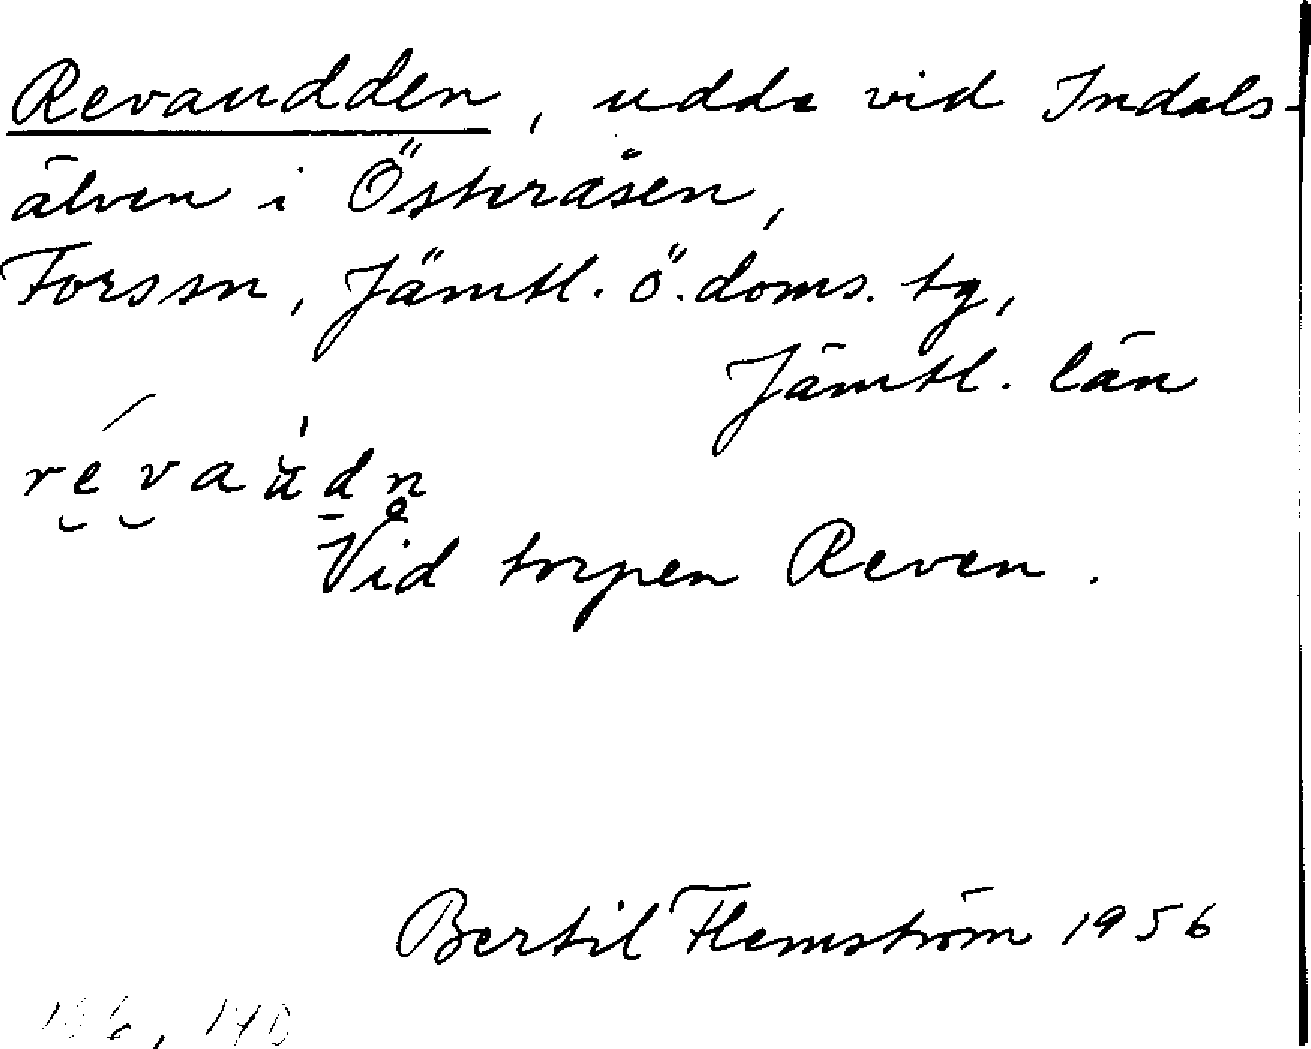 Revaudden, udde vid Indals-
älven i Österåsen,
Forssn, Jämtl. ö. doms. tg,
Jämtl. län
révaùdn̥
Vid torpen Reven.
Bertil Flemström 1956